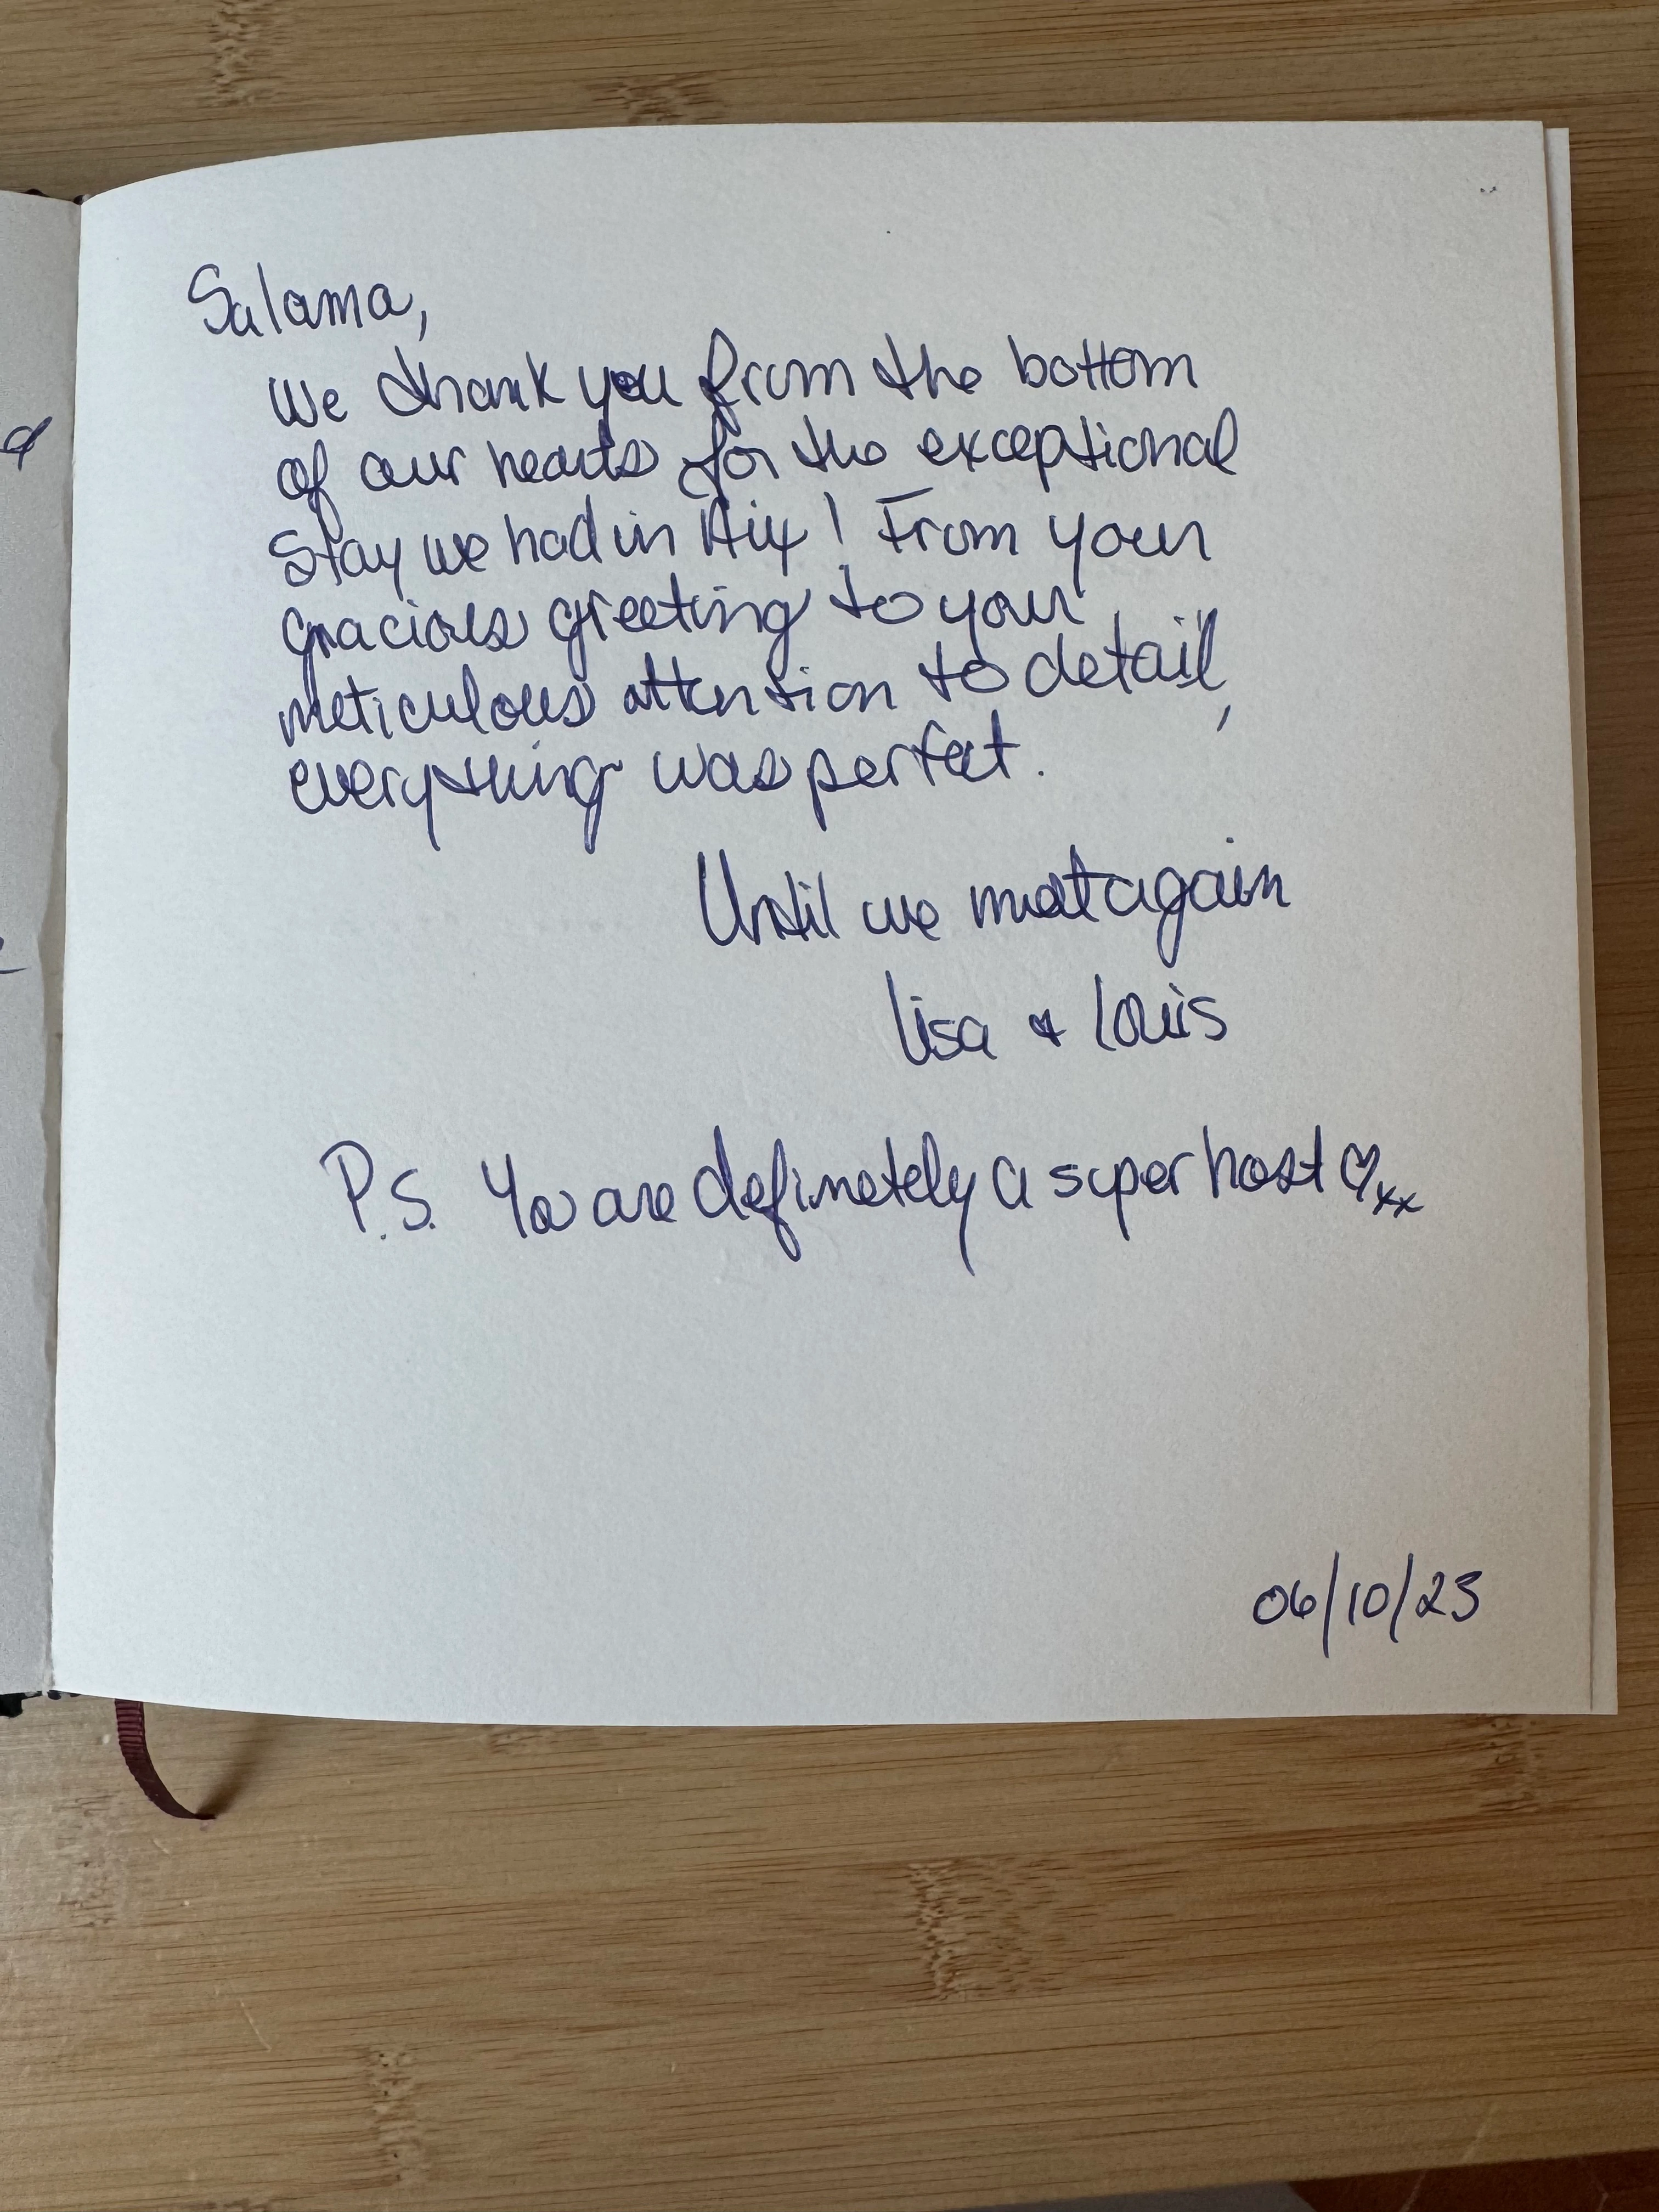 Salama,
We thank you from the bottom
of our hearts for the exceptional
Stay we had in Aix! From your
gracious greeting to your
meticulous attention to detail,
everything was perfect.
Until we meet again
Lisa & Louis
P.S. You are definetely a super host ♡xx
06/10/23